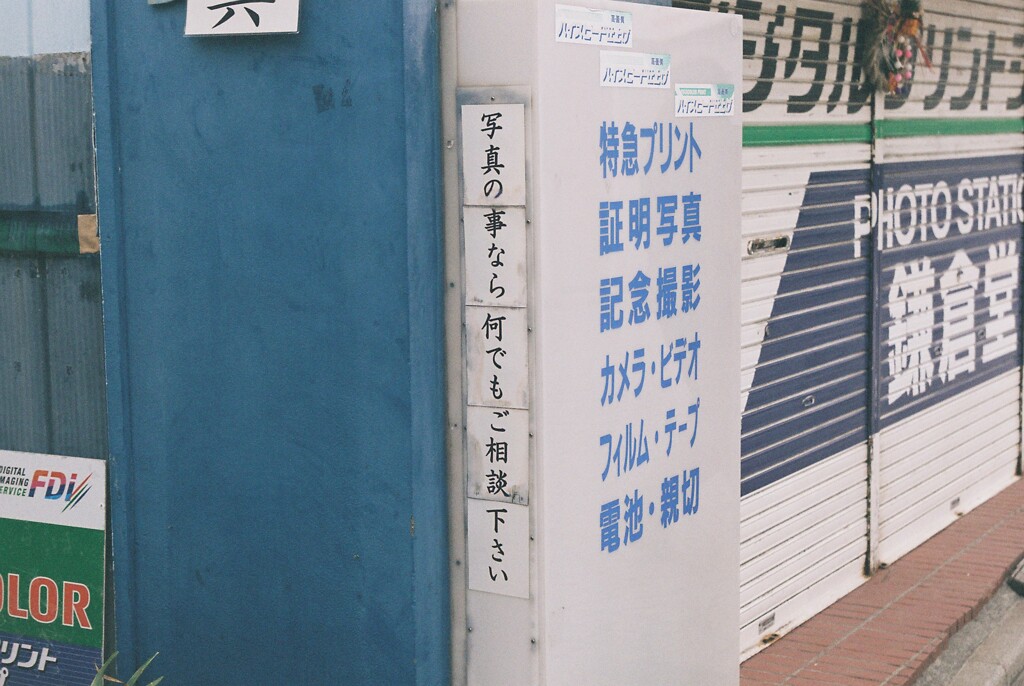 写真の事なら何でもご相談下さい
高画質
ハイスピード仕上げ
高画質
ハイスピード仕上げ
高画質
ハイスピード仕上げ
特急プリント
証明写真
記念撮影
カメラ・ビデオ
フィルム・テープ
電池・親切
デジタルプリント
PHOTO STATIO
鎌倉堂
DIGITAL
IMAGING
SERVICE
FDi
OLOR
リント